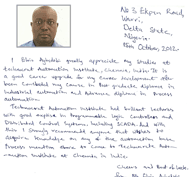 No 3 Ekpan Road,
Warri,
Delta State,
Nigeria.
15th October, 2012
I Ebin Ajibade greatly appreciate my studies at
Technocrat Automation Institute, Chennai, India. It is
a good career upgrade for my career enhancement. Have
been conducted my course in Post graduate diploma in
Industrial automation and Advance diploma in Process
automation.
Technocrat Automation Institute had brilliant lectures
with good exposure in Programmable logic Controllers and
Distributed Control Systems, including SCADA. And with
this I strongly recommend anyone that wishes to
acquire knowledge in any of the automation base
Process mention above to come to Technocrat Auto-
mation Institute at Chennai in India.
Cheers and Best of Luck.